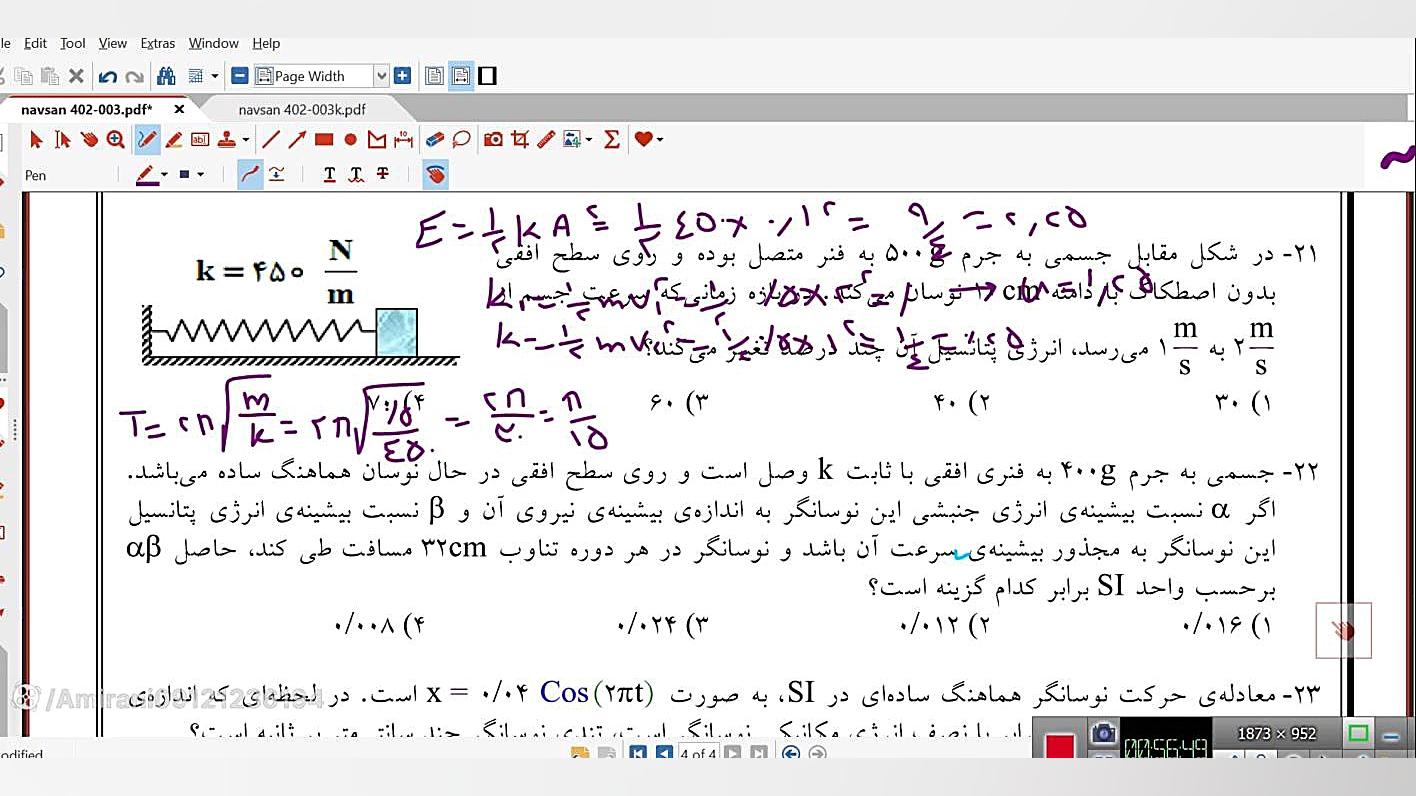 Edit Tool View Extras Window Help
Page Width
navsan 402-003.pdf* × navsan 402-003k.pdf
Pen
E = ۱/۲ k A² = ۱/۲ ۴۵۰ × ۰/۱² = ۹/۴ = ۲,۲۵
k = ۴۵۰ N/m
۲۱- در شکل مقابل جسمی به جرم ۵۰۰g به فنر متصل بوده و روی سطح افقی
بدون اصطکاک با دامنه cm نوسان می‌کند. در بازه زمانی‌که سرعت جسم از
۲ m/s به ۱ m/s می‌رسد، انرژی پتانسیل آن چند درصد تغییر می‌کند؟
۱) ۳۰ ۲) ۴۰ ۳) ۶۰ ۴) ۷۰
T = ۲π √m/k = ۲π √۰/۵/۴۵۰ = ۲π/۳۰ = π/۱۵
۲۲- جسمی به جرم ۴۰۰g به فنری افقی با ثابت k وصل است و روی سطح افقی در حال نوسان هماهنگ ساده می‌باشد.
اگر α نسبت بیشینه‌ی انرژی جنبشی این نوسانگر به اندازه‌ی بیشینه‌ی نیروی آن و β نسبت بیشینه‌ی انرژی پتانسیل
این نوسانگر به مجذور بیشینه‌ی سرعت آن باشد و نوسانگر در هر دوره تناوب ۳۲cm مسافت طی کند، حاصل αβ
برحسب واحد SI برابر کدام گزینه است؟
۱) ۰/۰۱۶ ۲) ۰/۰۱۲ ۳) ۰/۰۲۴ ۴) ۰/۰۰۸
۲۳- معادله‌ی حرکت نوسانگر هماهنگ ساده‌ای در SI، به صورت x = ۰/۰۴ Cos(۲πt) است. در لحظه‌ای که اندازه‌ی
برابر با نصف انرژی مکانیکی نوسانگر است، تندی نوسانگر چند سانتی‌متر بر ثانیه است؟
1873 × 952
00:56:49
4 of 4